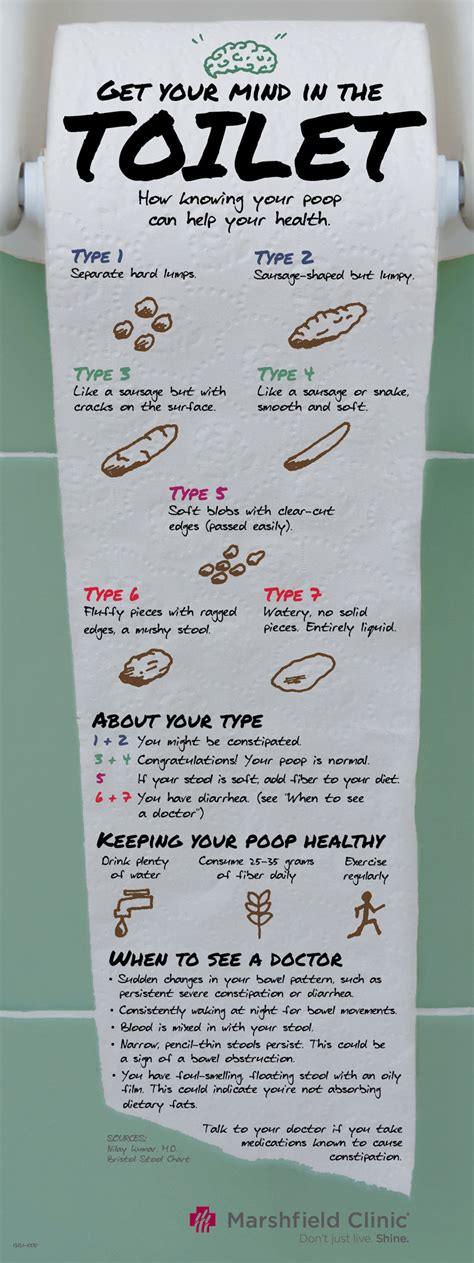 GET YOUR MIND IN THE
TOILET
How knowing your poop
can help your health.
TYPE 1
Separate hard lumps.
TYPE 2
Sausage-shaped but lumpy.
TYPE 3
Like a sausage but with
cracks on the surface.
TYPE 4
Like a sausage or snake,
smooth and soft.
TYPE 5
Soft blobs with clear-cut
edges (passed easily).
TYPE 6
Fluffy pieces with ragged
edges, a mushy stool.
TYPE 7
Watery, no solid
pieces. Entirely liquid.
ABOUT YOUR TYPE
1 + 2 You might be constipated.
3 + 4 Congratulations! Your poop is normal.
5 If your stool is soft, add fiber to your diet.
6 + 7 You have diarrhea. (see "When to see
a doctor")
KEEPING YOUR POOP HEALTHY
Drink plenty
of water
Consume 25-35 grams
of fiber daily
Exercise
regularly
WHEN TO SEE A DOCTOR
• Sudden changes in your bowel pattern, such as
persistent severe constipation or diarrhea.
• Consistently waking at night for bowel movements.
• Blood is mixed in with your stool.
• Narrow, pencil-thin stools persist. This could be
a sign of a bowel obstruction.
• You have foul-smelling, floating stool with an oily
film. This could indicate you're not absorbing
dietary fats.
Talk to your doctor if you take
medications known to cause
constipation.
SOURCES:
Nilay Kumar, M.D.
Bristol Stool Chart
Marshfield Clinic®
Don't just live. Shine.